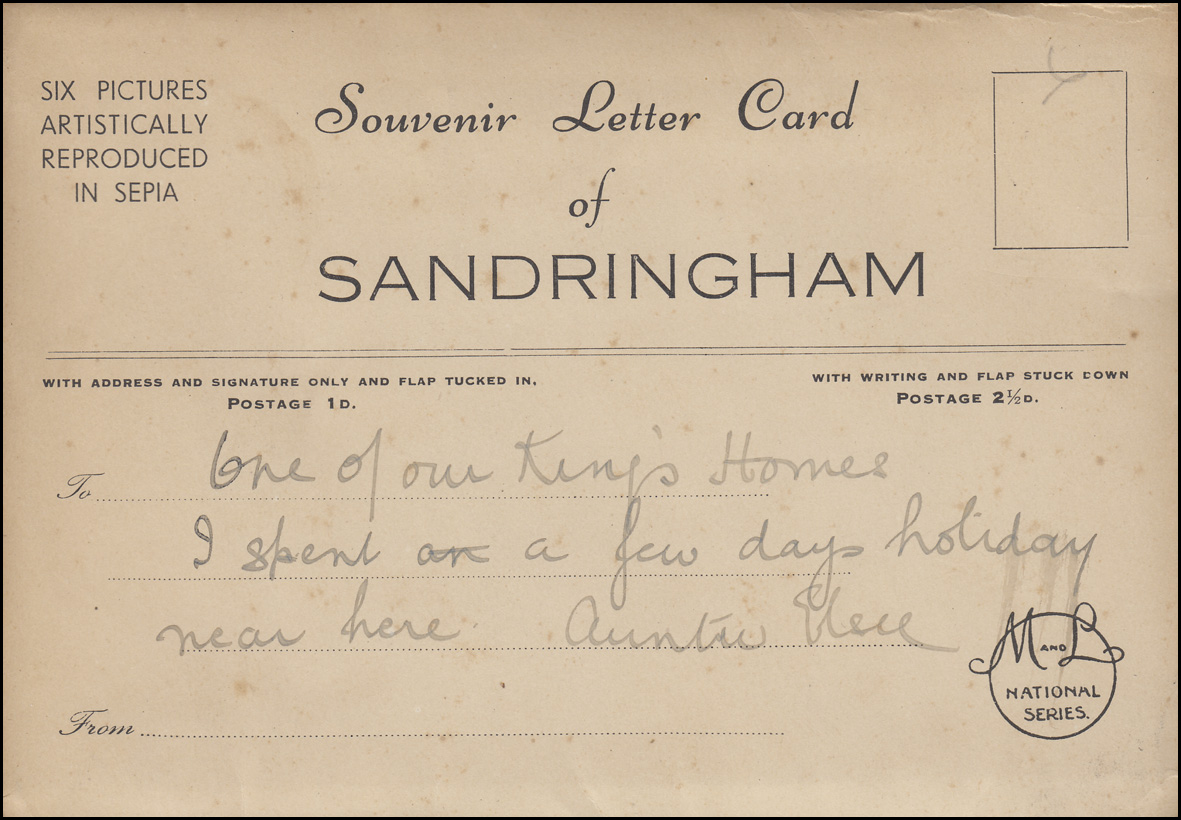 SIX PICTURES
ARTISTICALLY
REPRODUCED
IN SEPIA
Souvenir Letter Card
of
SANDRINGHAM
WITH ADDRESS AND SIGNATURE ONLY AND FLAP TUCKED IN,
POSTAGE 1D.
WITH WRITING AND FLAP STUCK DOWN
POSTAGE 2½D.
To One of our King's Homes
I spent an a few days holiday
near here. Auntie
From
M AND L
NATIONAL
SERIES.